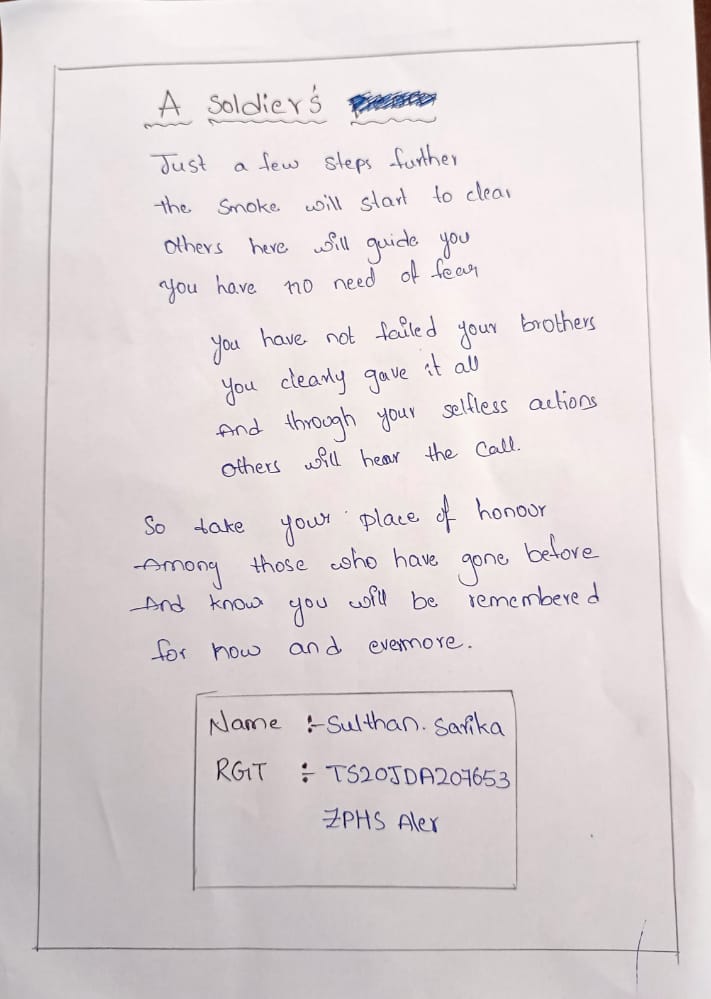 A Soldier's
Just a few steps further
the smoke will start to clear
others here will guide you
you have no need of fear
you have not failed your brothers
you clearly gave it all
And through your selfless actions
others will hear the call.
So take your place of honour
Among those who have gone before
And know you will be remembered
for now and evermore.
Name :- Sulthan. Sarika
RGIT :- TS20JDA207653
ZPHS Aler